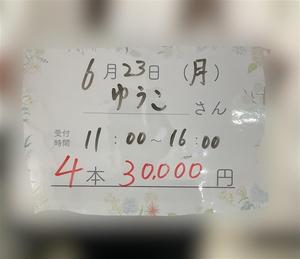 6月23日(月)
ゆうこ さん
受付時間 11:00~16:00
4本 30,000円